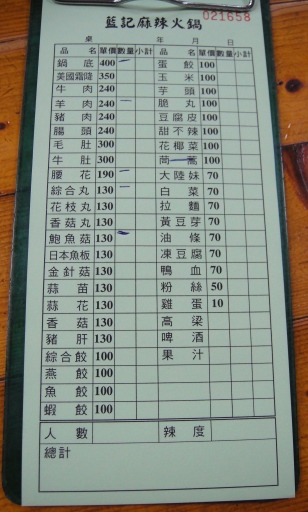 藍記麻辣火鍋
021658
桌 年 月 日
品名 單價 數量 小計 品名 單價 數量 小計
鍋底 400 蛋餃 100
美國霜降 350 玉米 100
牛肉 240 芋頭 100
羊肉 240 脆丸 100
豬肉 240 豆腐皮 100
腸頭 240 甜不辣 100
毛肚 300 花椰菜 100
牛肚 300 茼蒿 100
腰花 190 大陸妹 70
綜合丸 130 白菜 70
花枝丸 130 拉麵 70
香菇丸 130 黃豆芽 70
鮑魚菇 130 油條 70
日本魚板 130 凍豆腐 70
金針菇 130 鴨血 70
蒜苗 130 粉絲 50
蒜花 130 雞蛋 10
香菇 130 高梁
豬肝 130 啤酒
綜合餃 100 果汁
燕餃 100
魚餃 100
蝦餃 100
人數 辣度
總計